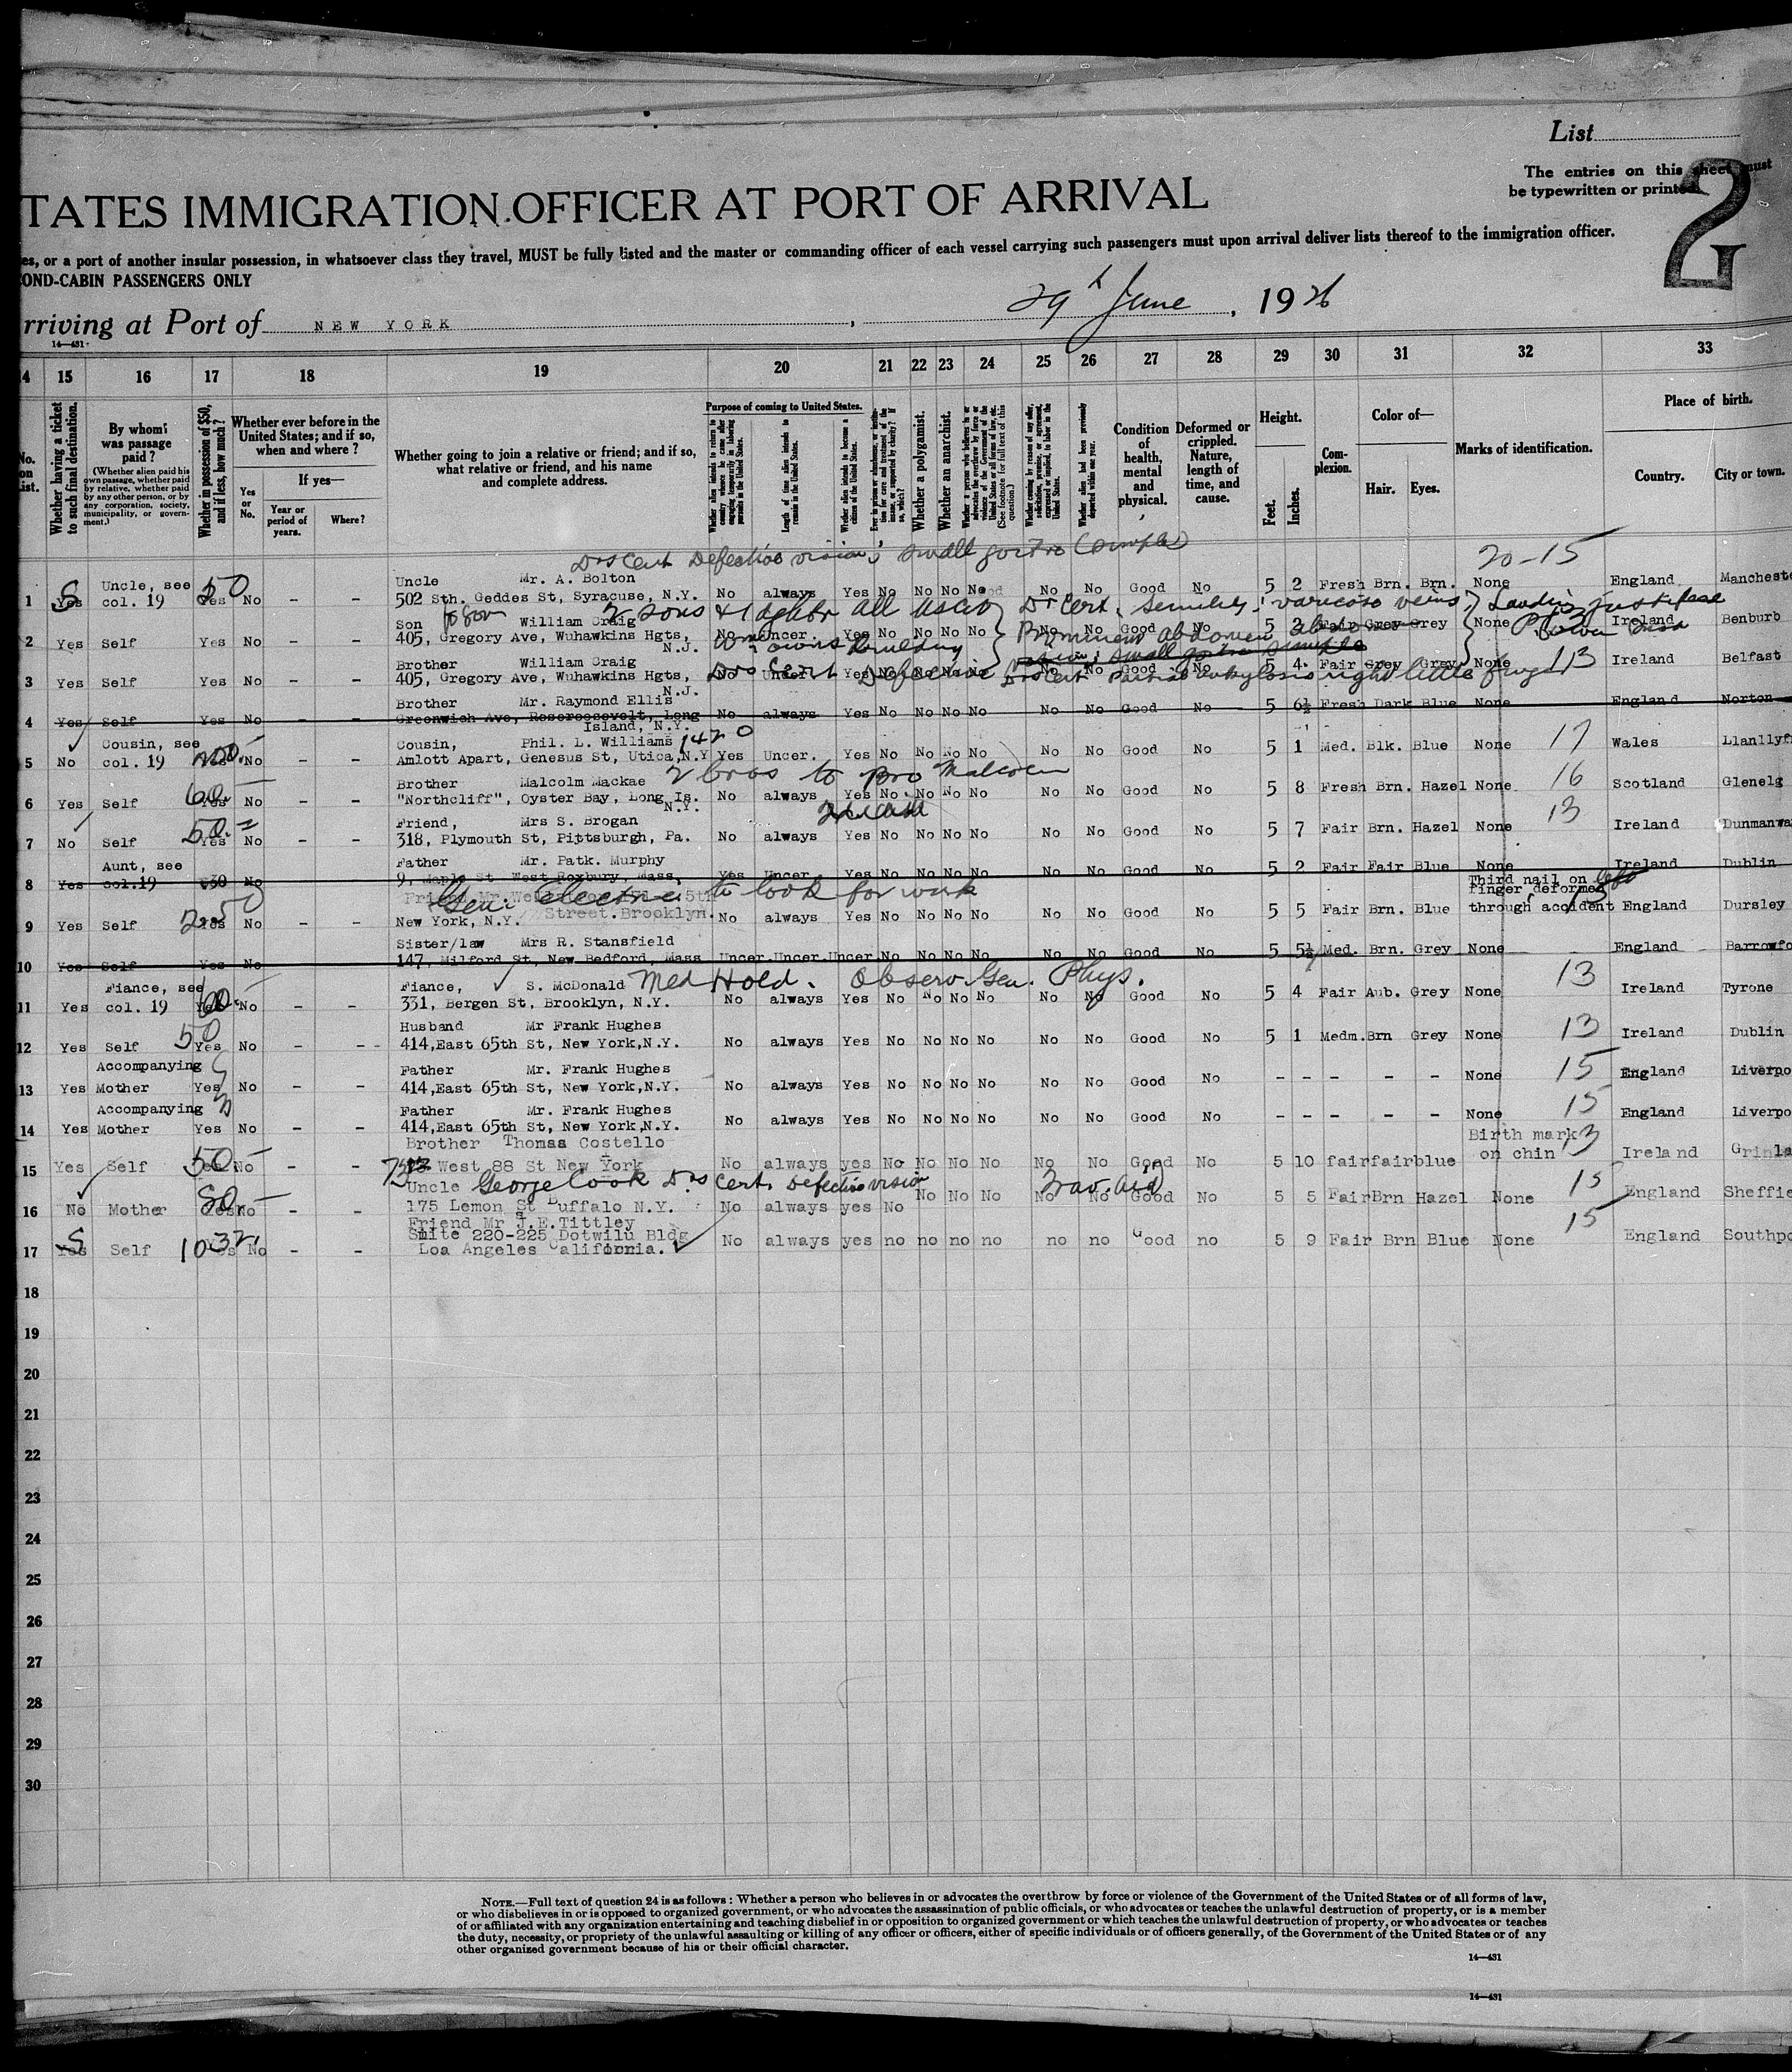 List
The entries on this sheet must
be typewritten or printed.
2
TATES IMMIGRATION OFFICER AT PORT OF ARRIVAL
es, or a port of another insular possession, in whatsoever class they travel, MUST be fully listed and the master or commanding officer of each vessel carrying such passengers must upon arrival deliver lists thereof to the immigration officer.
OND-CABIN PASSENGERS ONLY
rriving at Port of NEW YORK, 29th June, 1926
14—431
4 15 16 17 18 19 20 21 22 23 24 25 26 27 28 29 30 31 32 33
No. on List.
Whether having a ticket to such final destination.
By whom was passage paid?
(Whether alien paid his own passage, whether paid by relative, whether paid by any other person, or by any corporation, society, municipality, or government.)
Whether in possession of $50, and if less, how much?
Whether ever before in the United States; and if so, when and where?
Yes or No.
If yes—
Year or period of years.
Where?
Whether going to join a relative or friend; and if so, what relative or friend, and his name and complete address.
Purpose of coming to United States.
Whether alien intends to return to country whence he came after engaging temporarily in laboring pursuits in the United States.
Length of time alien intends to remain in the United States.
Whether alien intends to become a citizen of the United States.
Whether a polygamist.
Whether an anarchist.
(See footnote for full text of this question.)
Whether coming by reason of any offer, solicitation, promise, or agreement, expressed or implied, to labor in the United States.
Whether alien had been previously deported within one year.
Condition of health, mental and physical.
Deformed or crippled. Nature, length of time, and cause.
Height.
Feet.
Inches.
Complexion.
Color of—
Hair. Eyes.
Marks of identification.
Place of birth.
Country. City or town.
Drs Cert Defective vision; small goitre (simple) 20-15
Uncle, see Uncle Mr. A. Bolton
1 S Yes col. 19 50 Yes No – – 502 Sth. Geddes St, Syracuse, N.Y. No always Yes No No No No No No Good No 5 2 Fresh Brn. Brn. None England Mancheste
2 sons & 1 daughter all USCit Dr Cert. Senility; varicose veins;
Son William Craig
2 Yes Self Yes No – – 405, Gregory Ave, Wuhawkins Hgts, N.J. No Uncer. Yes No No No No No No Good No 5 2 Fair Grey Grey None Ireland Benburb
owns building Prominent abdomen small goitre simple
Brother William Craig
3 Yes Self Yes No – – 405, Gregory Ave, Wuhawkins Hgts, N.J. No Uncer. Yes No No No No No No Good No 5 4 Fair Grey Grey None 13 Ireland Belfast
Drs Cert Defective Drs Cert Partial ankylosis right little finger
Brother Mr. Raymond Ellis
4 Yes Self Yes No – – Greenwich Ave, Roseroosevelt, Long Island, N.Y. No always Yes No No No No No No Good No 5 6½ Fresh Dark Blue None England Norton
Cousin, see Cousin, Phil. L. Williams 1420
5 No col. 19 200 Yes No – – Amlott Apart, Genesus St, Utica, N.Y Yes Uncer. Yes No No No No No No Good No 5 1 Med. Blk. Blue None 17 Wales Llanllyf
2 bros to Bro Malcolm
Brother Malcolm Mackae
6 Yes Self 60 Yes No – – "Northcliff", Oyster Bay, Long Is. N.Y. No always Yes No No No No No No Good No 5 8 Fresh Brn. Hazel None 16 Scotland Glenelg
Friend, Mrs S. Brogan
7 No Self 50 Yes No – – 318, Plymouth St, Pittsburgh, Pa. No always Yes No No No No No No Good No 5 7 Fair Brn. Hazel None 13 Ireland Dunmanwa
Aunt, see Father Mr. Patk. Murphy
8 Yes col.19 £30 No 9, Maple St West Roxbury, Mass, Yes Uncer. Yes No No No No No No Good No 5 2 Fair Fair Blue None Ireland Dublin
Gen. Electric to look for work Third nail on left
Street. Brooklyn. finger deformed
9 Yes Self 250 Yes No – – New York, N.Y. No always Yes No No No No No No Good No 5 5 Fair Brn. Blue through accident 13 England Dursley
Sister/law Mrs R. Stansfield
10 Yes Self Yes No 147, Milford St, New Bedford, Mass Uncer Uncer Uncer No No No No No No Good No 5 5½ Med. Brn. Grey None England Barrowfo
Med Hold. Observ. Gen. Phys.
Fiance, see Fiance, S. McDonald
11 Yes col. 19 Yes No – – 331, Bergen St, Brooklyn, N.Y. No always Yes No No No No No No Good No 5 4 Fair Aub. Grey None 13 Ireland Tyrone
Husband Mr Frank Hughes
12 Yes Self 50 Yes No – – 414, East 65th St, New York, N.Y. No always Yes No No No No No No Good No 5 1 Medm. Brn Grey None 13 Ireland Dublin
Accompanying Father Mr. Frank Hughes
13 Yes Mother Yes No – – 414, East 65th St, New York, N.Y. No always Yes No No No No No No Good No – – – – – None 15 England Liverpo
Accompanying Father Mr. Frank Hughes
14 Yes Mother Yes No – – 414, East 65th St, New York, N.Y. No always Yes No No No No No No Good No – – – – – None 15 England Liverpo
Brother Thomas Costello Birth mark
15 Yes Self 50 Yes No – – West 88 St New York No always yes No No No No No No Good No 5 10 fair fair blue on chin 13 Ireland Grinla
Uncle George Cook Drs Cert. Defective vision Trav. Aid
16 No Mother 80 Yes No – – 175 Lemon St Buffalo N.Y. No always yes No No No No No No Good No 5 5 Fair Brn Hazel None 15 England Sheffie
Friend Mr J.E. Tittley
Suite 220-225 Dotwilu Bldg
17 S Yes Self 1032 Yes No – – Loa Angeles California. No always yes no no no no no no Good no 5 9 Fair Brn Blue None 15 England Southpo
18
19
20
21
22
23
24
25
26
27
28
29
30
NOTE.—Full text of question 24 is as follows: Whether a person who believes in or advocates the overthrow by force or violence of the Government of the United States or of all forms of law,
or who disbelieves in or is opposed to organized government, or who advocates the assassination of public officials, or who advocates or teaches the unlawful destruction of property, or is a member
of or affiliated with any organization entertaining and teaching disbelief in or opposition to organized government or which teaches the unlawful destruction of property, or who advocates or teaches
the duty, necessity, or propriety of the unlawful assaulting or killing of any officer or officers, either of specific individuals or of officers generally, of the Government of the United States or of any
other organized government because of his or their official character.
14—431
14—431